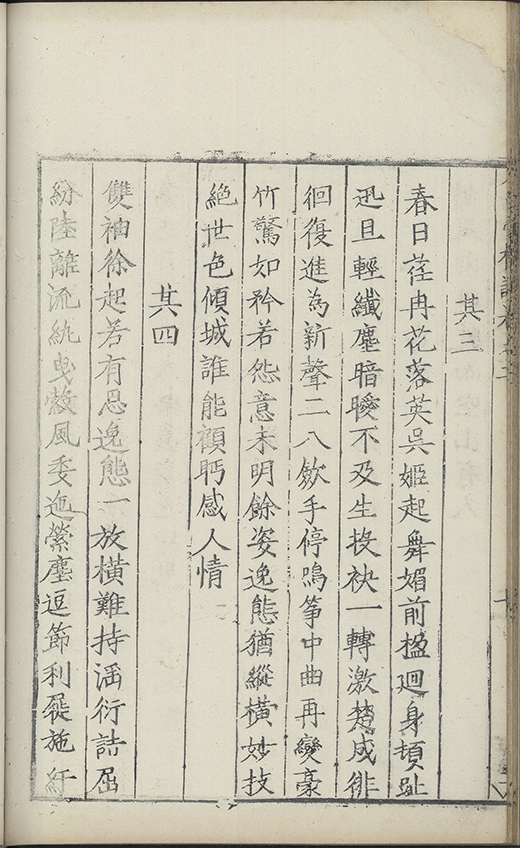 其三
春日荏冉花落英吳姬起舞媚前楹迴身頓趾
迅且輕纖塵暗曖不及生投袂一轉激楚成徘
徊復進為新聲二八斂手停鳴箏中曲再變豪
竹驚如矜若怨意未明餘姿逸態猶縱橫妙技
絕世色傾城誰能顧眄感人情
其四
雙袖徐起若有思逸態一放橫難持滔衍詰屈
紛陸離流紈曳縠風委迤縈塵逗節利屣施紆